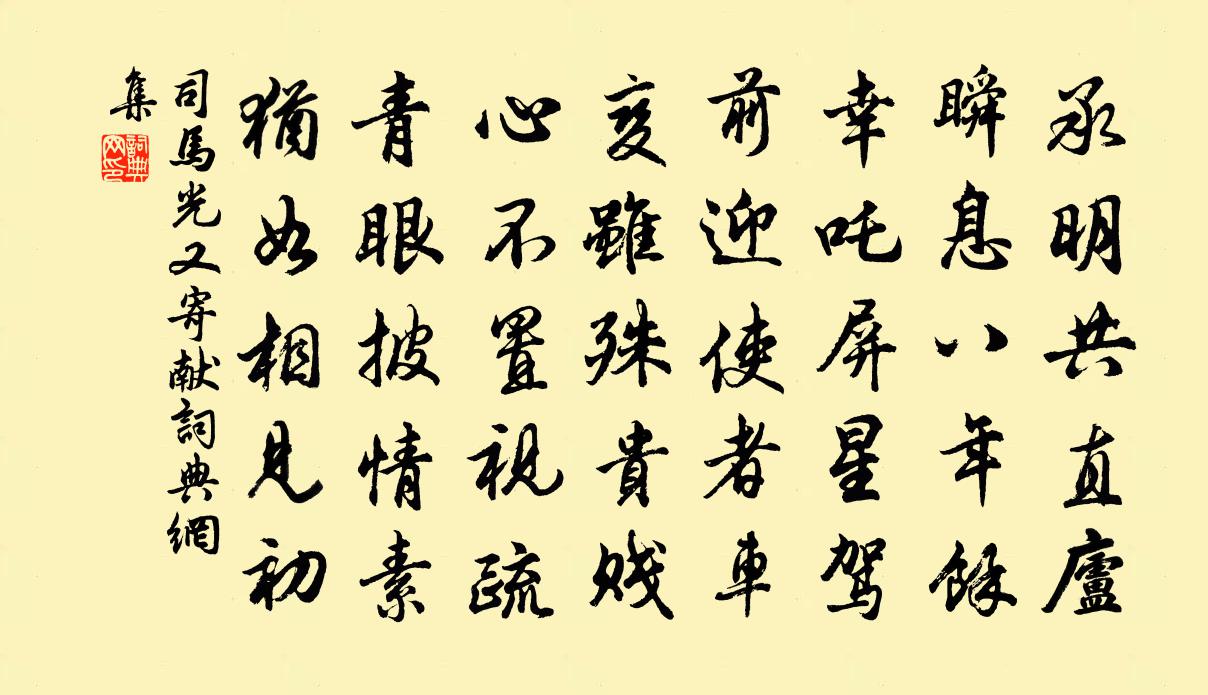 承明共直廬
瞬息八年餘
幸吒屏星駕
前迎使者車
交雖殊貴賤
心不置視疏
青眼披情素
猶如相見初
司馬光又寄献詞典網
集
詞典網印